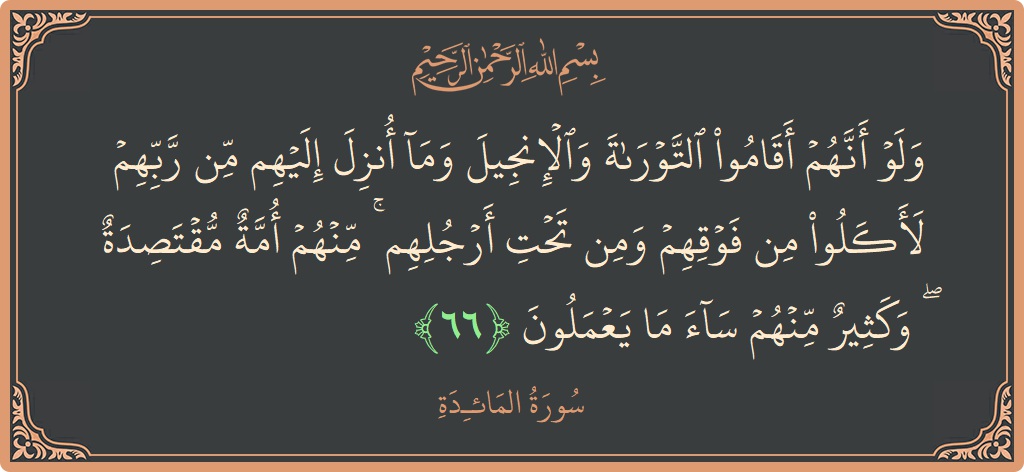 بِسْمِ اللهِ الرَّحْمٰنِ الرَّحِيْمِ
وَلَوۡ أَنَّهُمۡ أَقَامُواْ ٱلتَّوۡرَىٰةَ وَٱلۡإِنجِيلَ وَمَآ أُنزِلَ إِلَيۡهِم مِّن رَّبِّهِمۡ
لَأَكَلُواْ مِن فَوۡقِهِمۡ وَمِن تَحۡتِ أَرۡجُلِهِم ۚ مِّنۡهُمۡ أُمَّةٌ مُّقۡتَصِدَةٌ
ۖ وَكَثِيرٌ مِّنۡهُمۡ سَآءَ مَا يَعۡمَلُونَ ﴿٦٦﴾
سُورَةُ المَائـِدَةِ